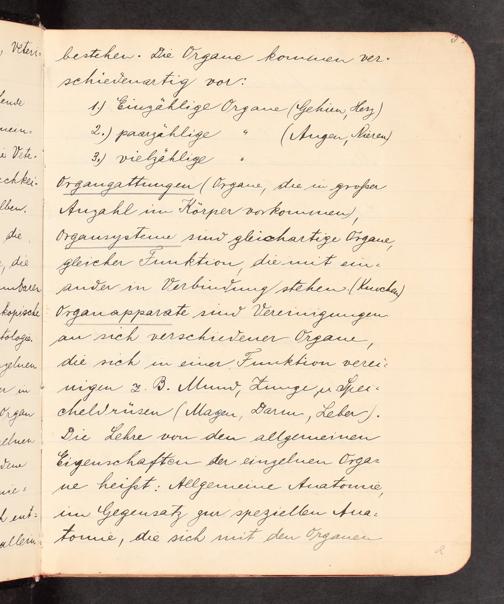 3.
bestehen. Die Organe kommen ver-
schiedenartig vor:
1.) Einzählige Organe (Gehirn, Herz)
2.) paarzählige " (Augen, Nieren)
3.) vielzählige "
Organgattungen (Organe, die in großer
Anzahl im Körper vorkommen),
Organsysteme sind gleichartige Organe,
gleicher Funktion, die mit ein-
ander in Verbindung stehen (Knochen)
Organapparate sind Vereinigungen
an sich verschiedener Organe,
die sich in einer Funktion verei-
nigen z. B. Mund, Zunge u. Spei-
cheldrüsen (Magen, Darm, Leber).
Die Lehre von den allgemeinen
Eigenschaften der einzelnen Orga-
ne heißt: Allgemeine Anatomie,
im Gegensatz zur speziellen Ana-
tomie, die sich mit den Organen